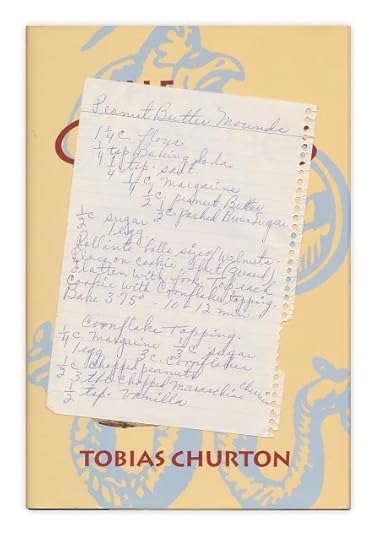 Peanut Butter Mounds
1 1/4 c. flour
1/4 tsp Baking Soda
1/4 tsp. salt
1/4 c. margarine
1/2 c. peanut Butter
1/2 c sugar 1/2 c packed Brown Sugar
1 egg
Roll into balls size of walnuts.
Place on cookie sheet (greased)
Flatten with fork. Top each
Cookie with Cornflake topping.
Bake 375° - 10 - 12 min.
Cornflake Topping.
1/4 c Margarine 1/3 c sugar
1 egg 3 c. Cornflakes
1/3 c. chopped peanuts
3 tbl. chopped Maraschino cherries
1/2 tsp. Vanilla
TOBIAS CHURTON